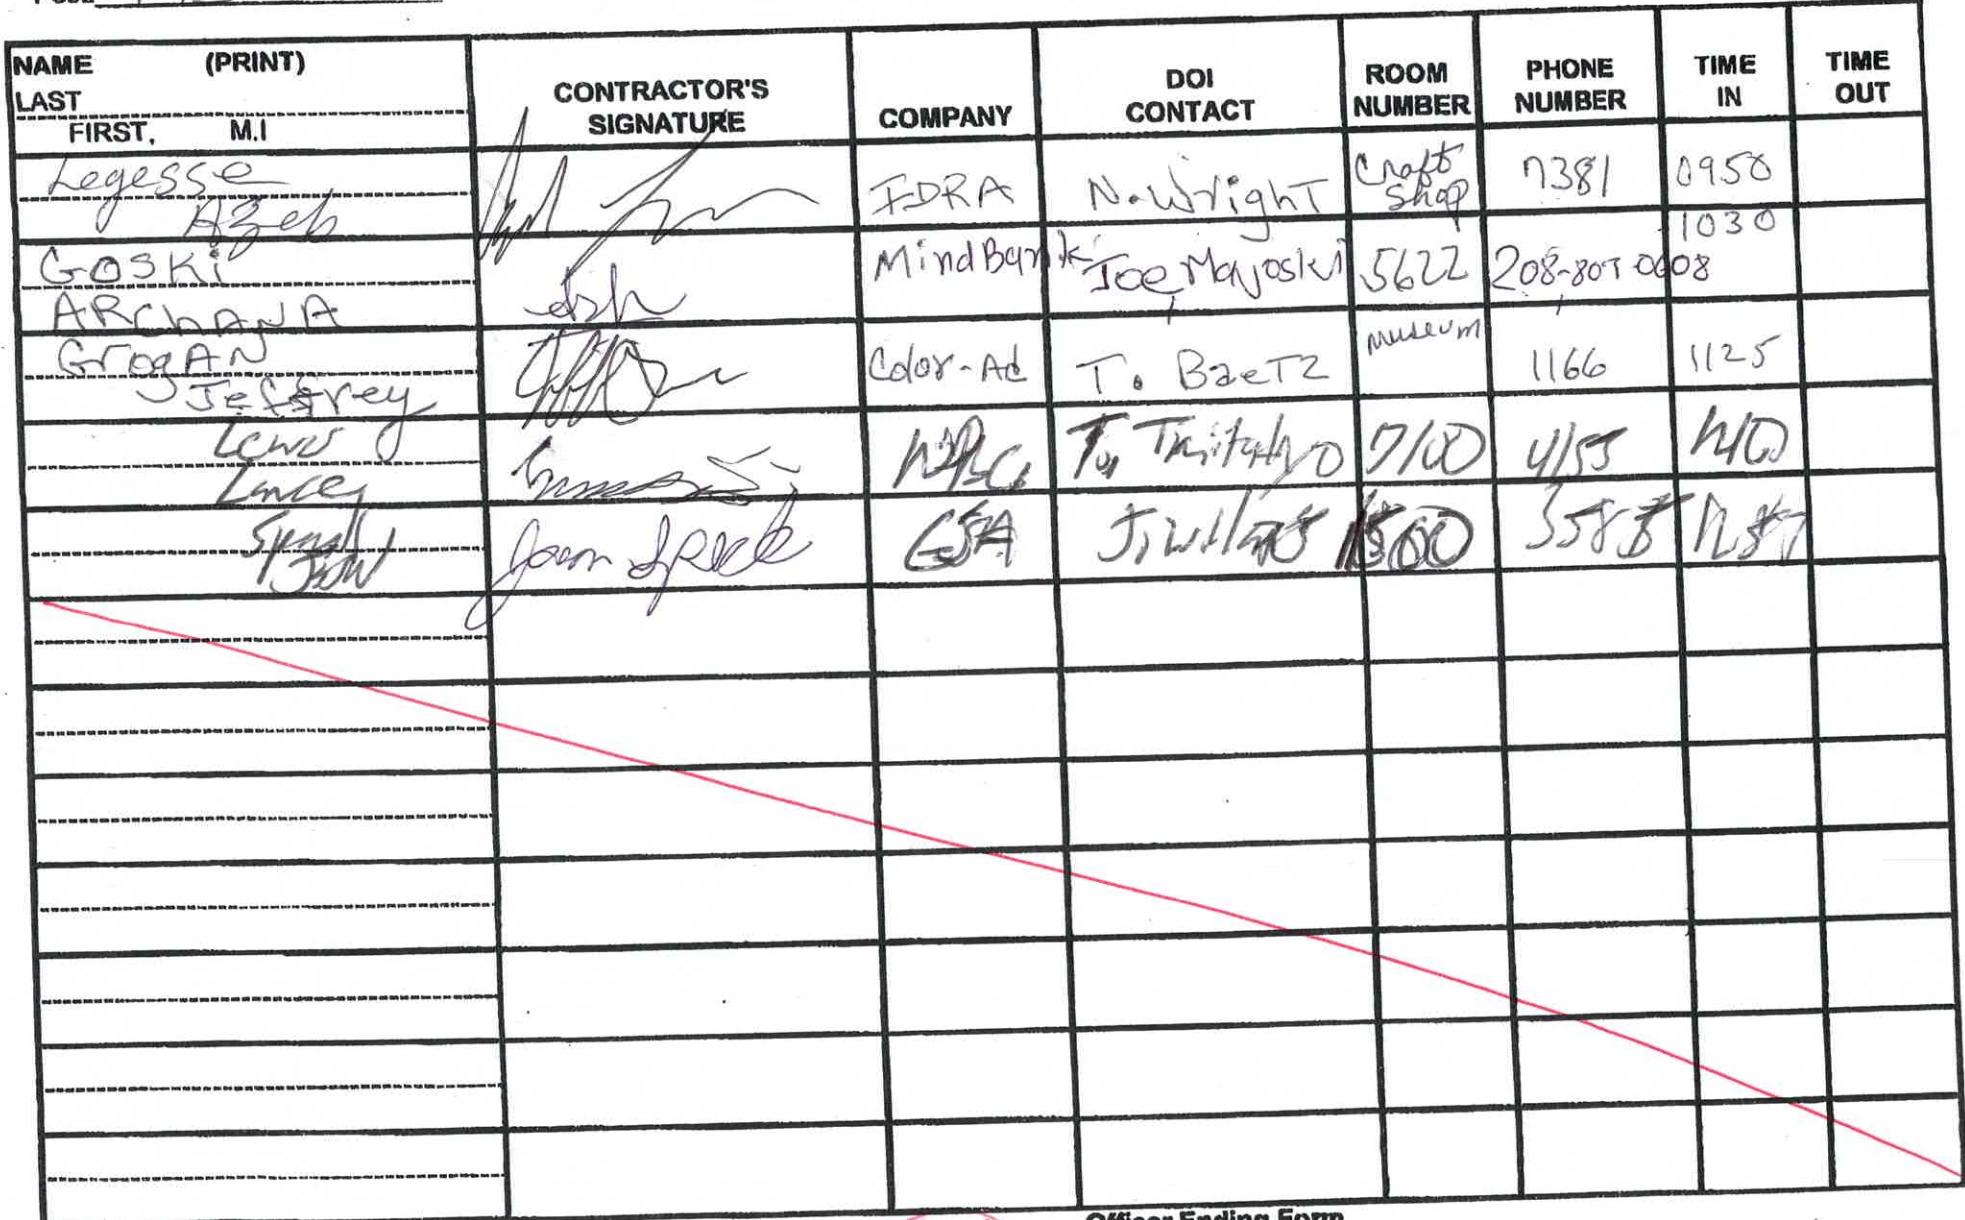 NAME (PRINT)
LAST
FIRST, M.I
CONTRACTOR'S
SIGNATURE
COMPANY
DOI
CONTACT
ROOM
NUMBER
PHONE
NUMBER
TIME
IN
TIME
OUT
Legesse
Azeb
IDRA
N. Wright
Craft
Shop
7381
0950
GOSKi
ARChANA
MindBank
Joe Mayoski
5622
208-807-0608
1030
GrogAN
Jeffrey
Color-Ad
T. BaeTz
museum
1166
1125
Lewis
Lancey
7100
4155
GSA
1500
Officer Ending Form